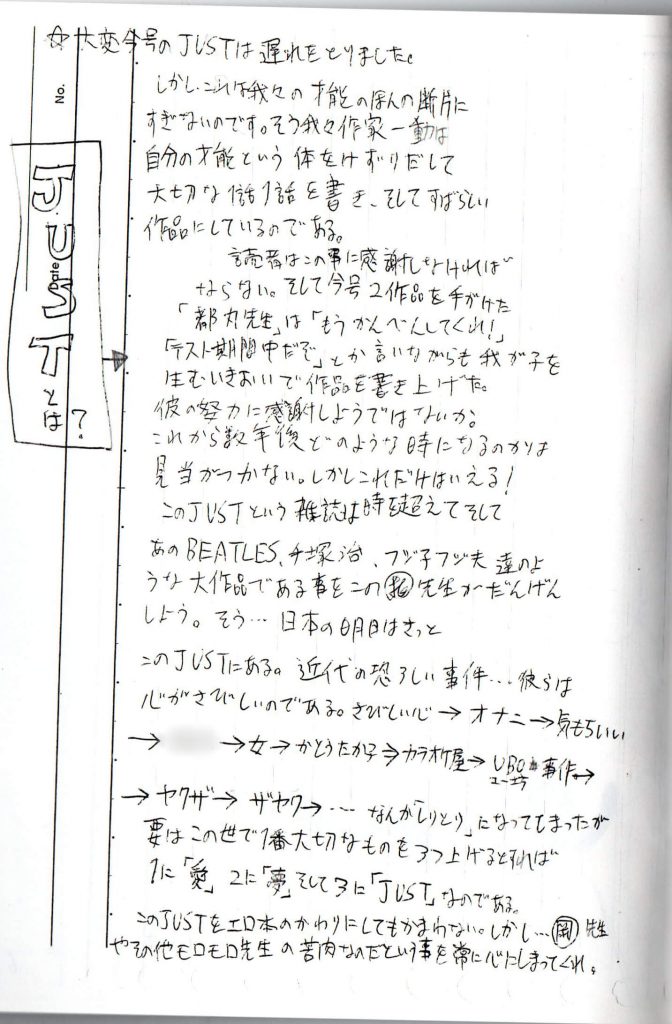 No.
Date
JUSTとは?
☆大変今号のJUSTは遅れをとりました。
しかしこれは我々の才能のほんの断片に
すぎないのです。そう我々作家一動は
自分の才能という体をけずりだして
大切な1話1話を書き、そしてすばらしい
作品にしているのである。
読者はこの事に感謝しなければ
ならない。そして今号2作品を手がけた
「都丸先生」は「もうかんべんしてくれ!」
「テスト期間中だぞ」とか言いながらも我が子を
生むいきおいで作品を書き上げた。
彼の努力に感謝しようではないか。
これから数年後どのような時になるのかは
見当がつかない。しかしこれだけはいえる!
このJUSTという雑誌は時を超えてそして
あのBEATLES、手塚治、フジ子フジ夫達のよ
うな大作品である事をこの 先生がだんげん
しよう。そう…日本の明日はきっと
このJUSTにある。近代の恐ろしい事件…彼らは
心がさびしいのである。さびしい心→オナニ→気もちいい
→ →女→かとうたか子→カラオケ屋→UBO 事件→
→ヤクザ→ザヤク→…なんか「しりとり」になってしまったが
要はこの世で1番大切なものを3つ上げるとすれば
1に「愛」2に「夢」そして3に「JUST」なのである。
このJUSTをエロ本のかわりにしてもかまわない。しかし…岡先生
やその他モロモロ先生の苦肉なのだという事を常に心にしまってくれ。